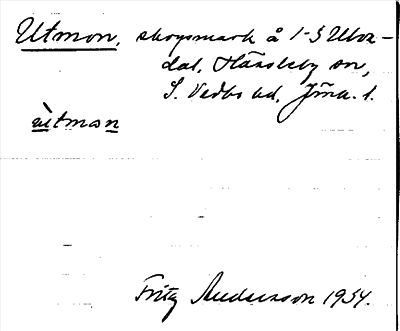 Utmon, skogsmark å 1-3 Ulva-
dal, Hässleby sn,
S. Vedbo hd, Jön. l.
ùtmɷn
Fritz Andersson 1934.